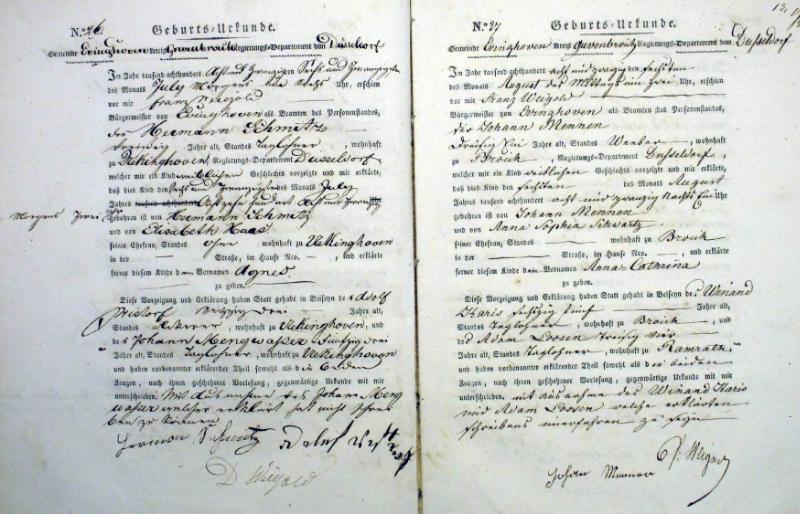 N.º 26. Geburts-Urkunde.
Gemeinde Evinghoven Kreis Grevenbroich Regierungs-Departement von Düsseldorf
Im Jahr tausend achthundert Acht und Zwanzigsten Sechs und Zwanzigsten
des Monats July Morgens um Sechs Uhr, erschien
vor mir Franz Weigold
Bürgermeister von Evinghoven als Beamten des Personenstandes,
der Hermann Schmitz
Dreissig Jahre alt, Standes Taglohner, wohnhaft
zu Uekinghoven, Regierungs-Departement Düsseldorf
welcher mir ein Kind weiblichen Geschlechts vorzeigte und mir erklärte,
daß dies Kind den Sechs und Zwanzigsten des Monats July
Jahres tausend achthundert
Morgens
gebohren ist von Hermann Schmitz
und von Elisabeth Haas
seiner Ehefrau, Standes ohne wohnhaft zu Uekinghoven
in der Straße, im Hause Nro. und erklärte
ferner diesem Kinde den Vornamen Agnes
zu geben.
Diese Vorzeigung und Erklärung haben Statt gehabt in Beiseyn des Adolf
Sechzig drei Jahre alt,
Standes Ackerer, wohnhaft zu Uekinghoven, und
des Johann Mengwasser Fünfzig drei
Jahre alt, Standes Taglohner, wohnhaft zu Uekinghoven
und haben vorbenannter erklärender Theil sowohl als die beiden
Zeugen, nach ihnen geschehener Vorlesung, gegenwärtige Urkunde mit mir
unterschrieben. Mit Ausnahme des Johann Meng
wasser welcher erklärt hat nicht schrei
ben zu können
Herman Schmitz
D Weigold
N.º 27 Geburts-Urkunde.
Gemeinde Evinghoven Kreis Grevenbroich Regierungs-Departement von Düsseldorf
Im Jahr tausend achthundert acht und zwanzig den sechsten
des Monats August des Mittags um zwei Uhr, erschien
vor mir Franz Weigold
Bürgermeister von Evinghoven als Beamten des Personenstandes,
der Johann Mennen
Dreißig Ein Jahre alt, Standes Weeber, wohnhaft
zu Broich, Regierungs-Departement Dusseldorf,
welcher mir ein Kind weiblichen Geschlechts vorzeigte und mir erklärte,
daß dies Kind den sechsten des Monats August
Jahres tausend achthundert acht und zwanzig Nachts Ein Uhr
gebohren ist von Johann Mennen
und von Anna Sophia Schwartz
seiner Ehefrau, Standes wohnhaft zu Broich
in der Straße, im Hause Nro. und erklärte
ferner diesem Kinde den Vornamen Anna Catharina
zu geben.
Diese Vorzeigung und Erklärung haben Statt gehabt in Beiseyn des Winand
Karis sechszig fünf Jahre alt,
Standes taglohner, wohnhaft zu Broich, und
des Adam Loosen dreisig vier
Jahre alt, Standes taglohner, wohnhaft zu Ramrath,
und haben vorbenannter erklärender Theil sowohl als die beiden
Zeugen, nach ihnen geschehener Vorlesung, gegenwärtige Urkunde mit mir
unterschrieben. mit Ausnahme des Winand Karis
und Adam Loosen welche erklärten
schreibens unerfahren zu seyn
Johan Mennen